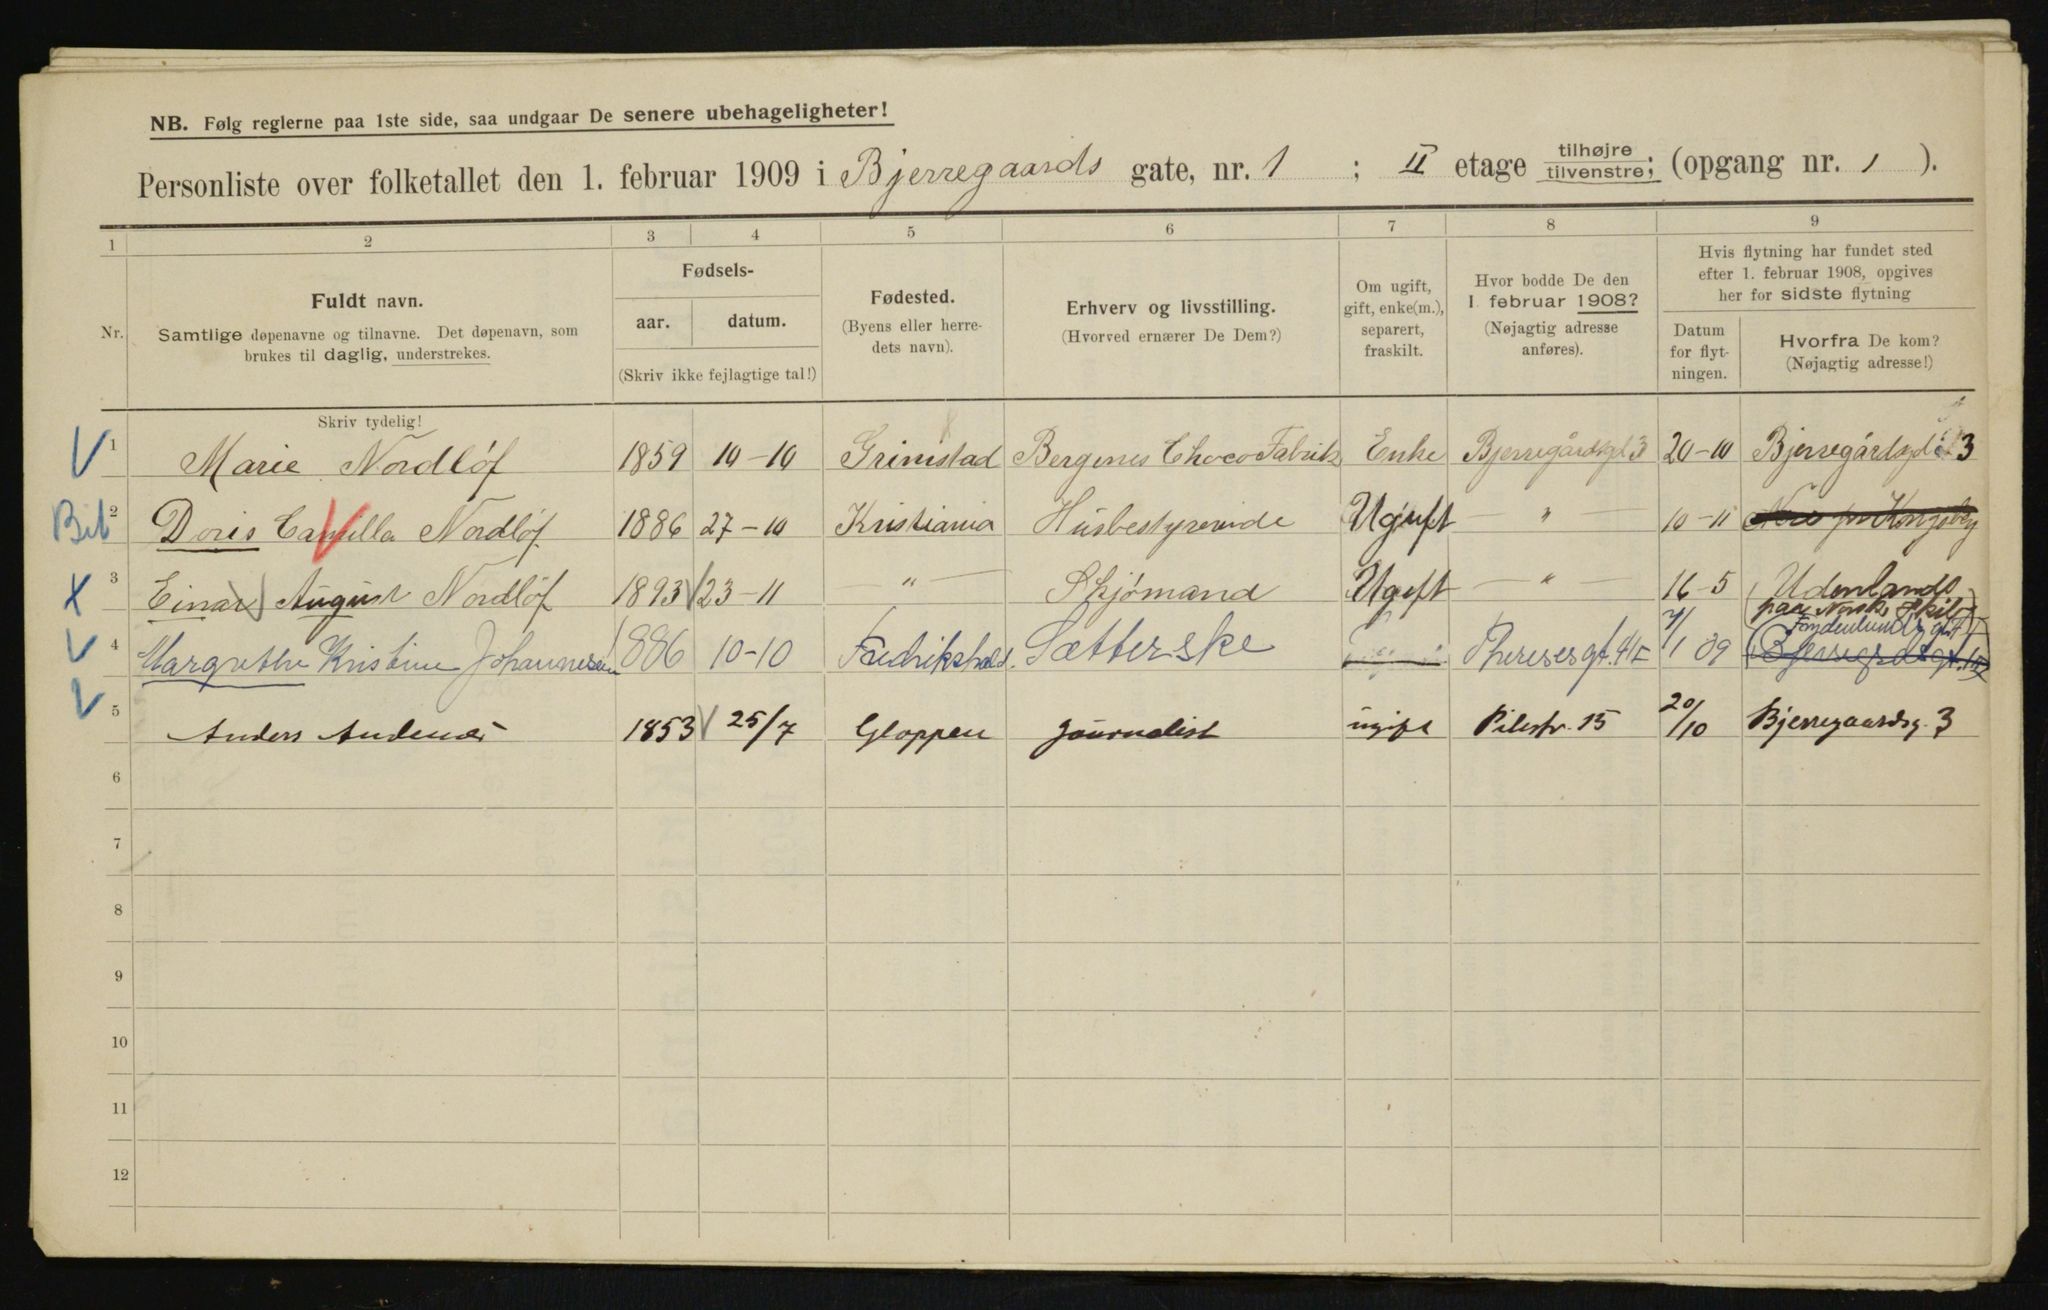 NB. Følg reglerne paa 1ste side, saa undgaar De senere ubehageligheter!
Personliste over folketallet den 1. februar 1909 i Bjerregaards gate, nr. 1 ; II etage tilhøjre tilvenstre; (opgang nr. 1 ).
1 2 3 4 5 6 7 8 9
Nr.
Fuldt navn.
Samtlige døpenavne og tilnavne. Det døpenavn, som
brukes til daglig, understrekes.
Skriv tydelig!
Fødsels-
aar. datum.
(Skriv ikke fejlagtige tal!)
Fødested.
(Byens eller herre-
dets navn).
Erhverv og livsstilling.
(Hvorved ernærer De Dem?)
Om ugift,
gift, enke(m.),
separert,
fraskilt.
Hvor bodde De den
1. februar 1908?
(Nøjagtig adresse
anføres).
Hvis flytning har fundet sted
efter 1. februar 1908, opgives
her for sidste flytning
Datum
for flyt-
ningen.
Hvorfra De kom?
(Nøjagtig adresse!)
1 Marie Nordløf 1859 10-10 Grimstad Bergenes Choco Fabrik Enke Bjerregårdsgd 3 20-10 Bjerregårdsgd 3
Bib 2 Doris Camilla Nordløf 1886 27-10 Kristiania Husbestyrerinde Ugift — " — 10-11
3 Einar August Nordløf 1893 23-11 — " — Skjømand Ugift — " — 16-5 Udenlands
paa Norsk Skib
4 Margrethe Kristine Johannesen 1886 10-10 Fredrikshald. Sætterske Theresesgt. 41 7/1 09
5 Anders Andenæs 1853 25/7 Gloppen journalist ugift Pilestr. 15 20/10 Bjerregaardsg. 3
6
7
8
9
10
11
12